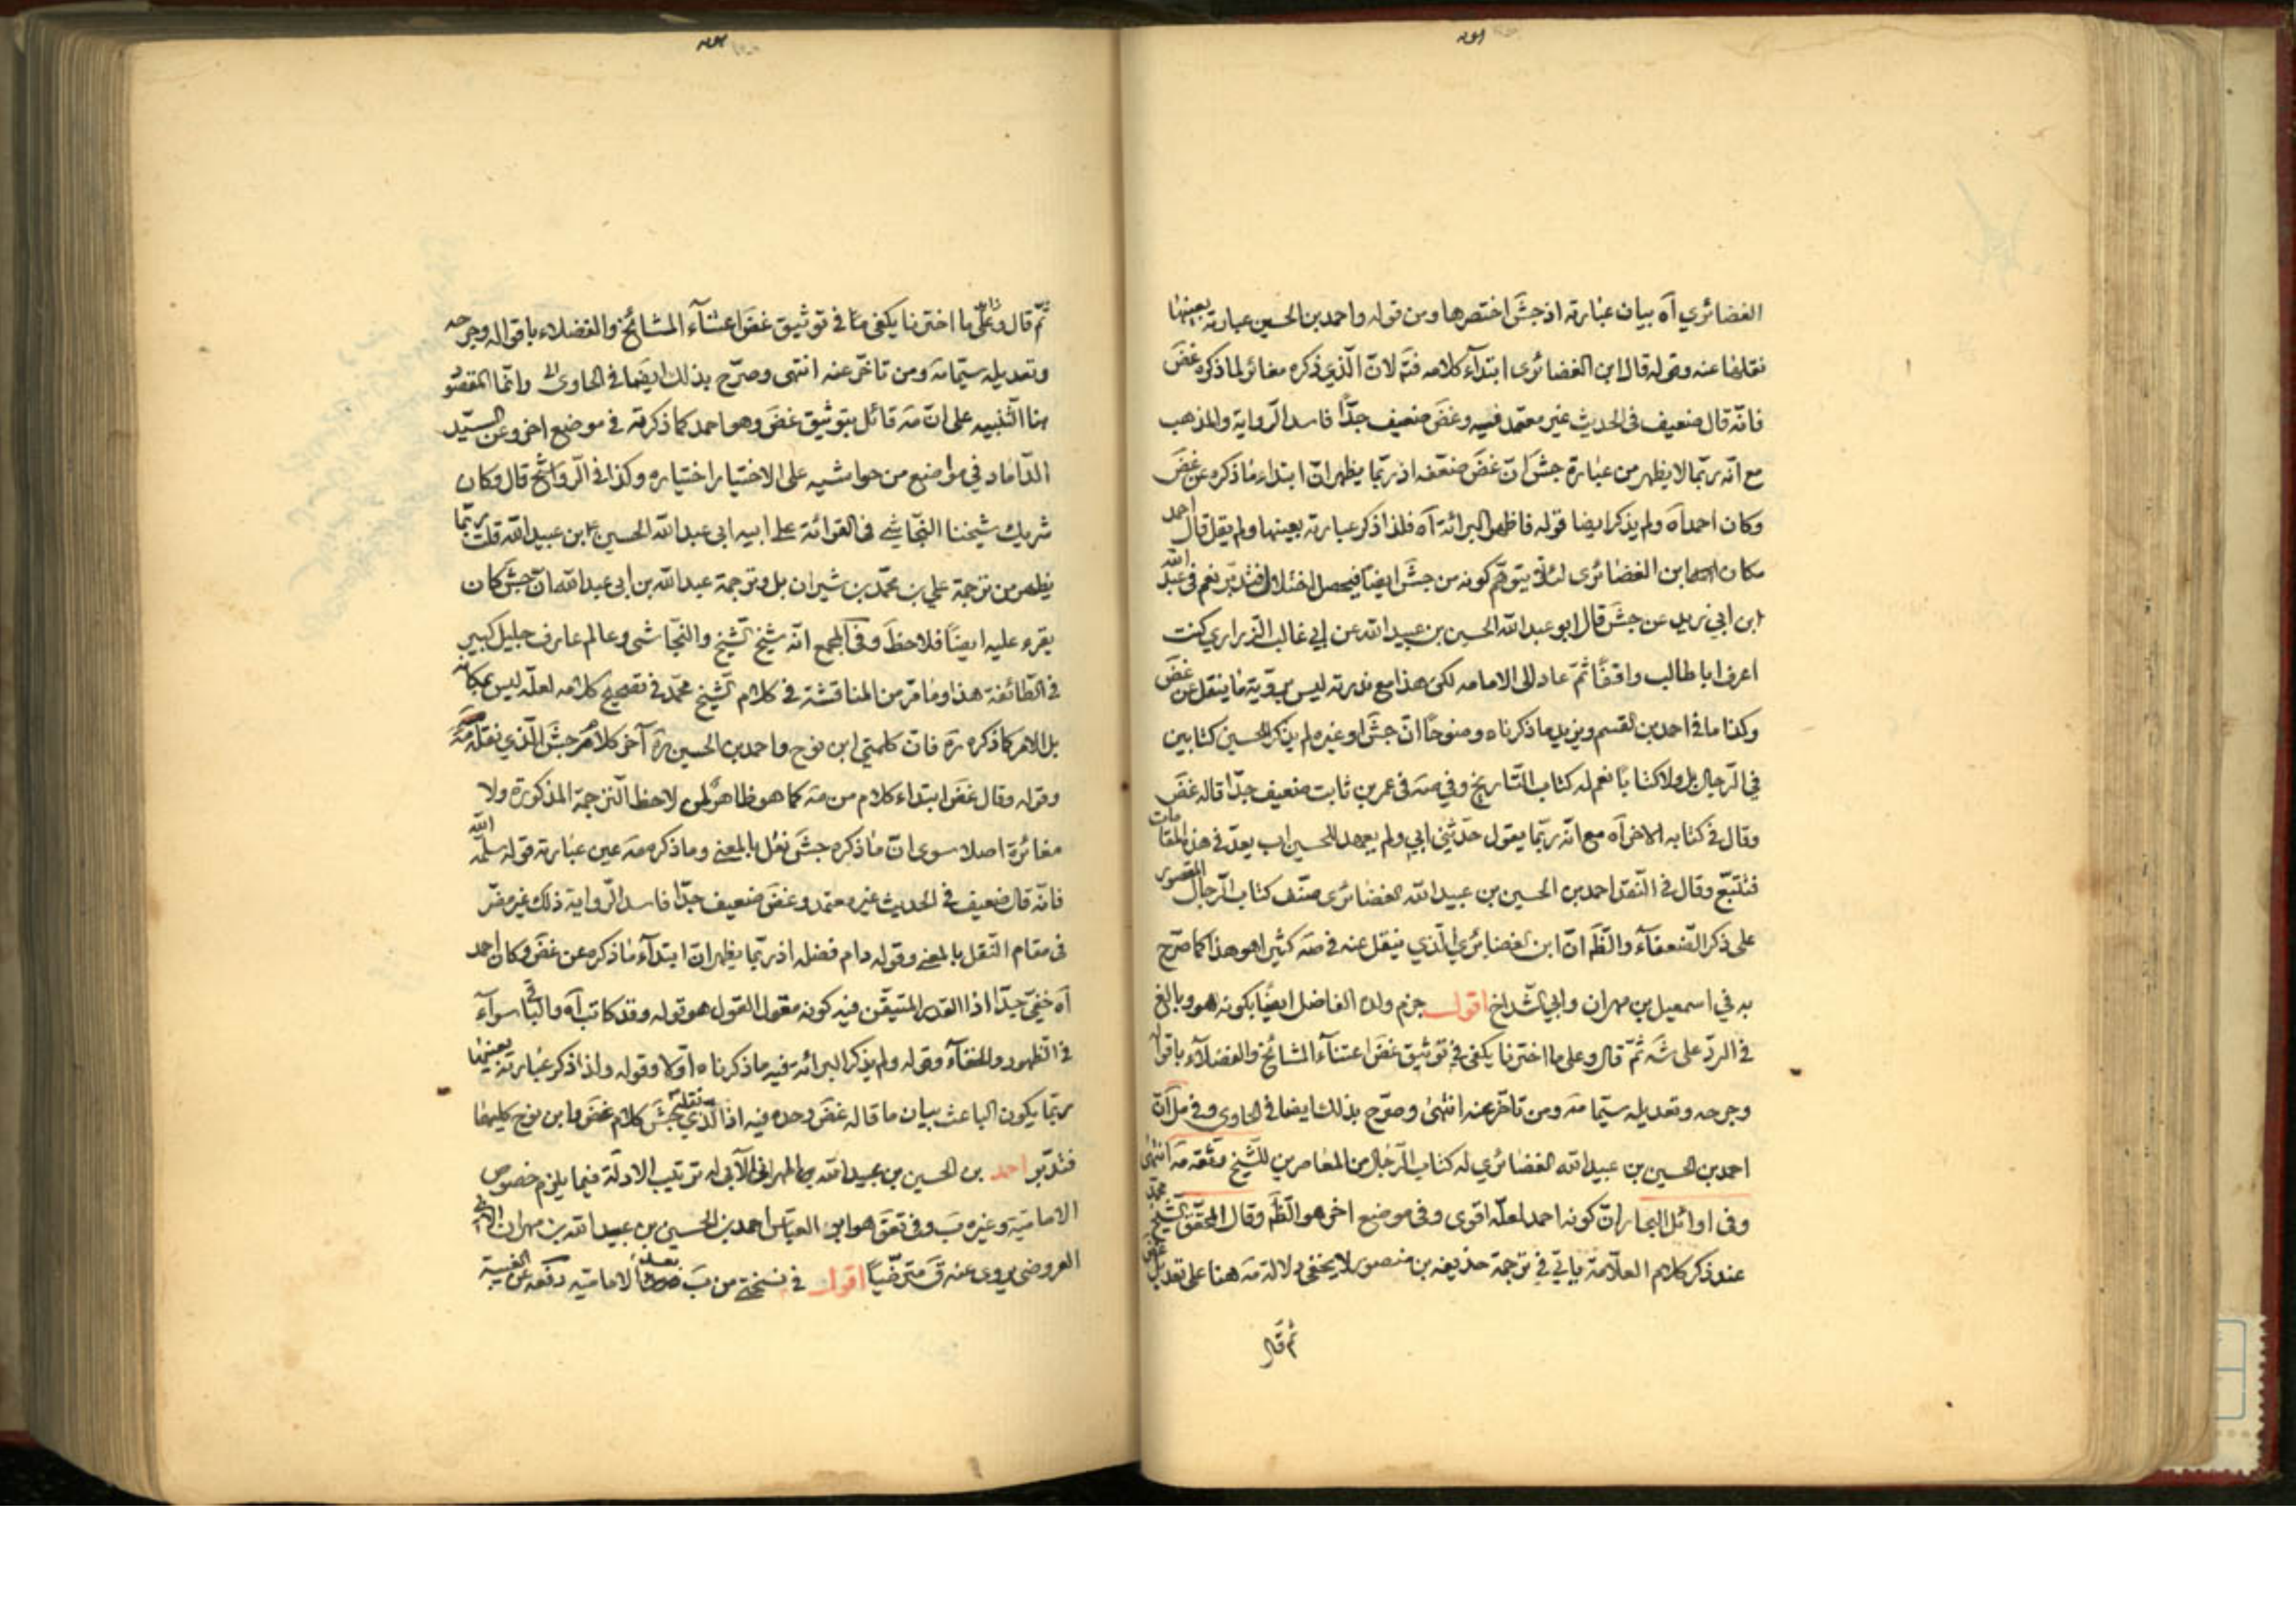 الغضائري آه بيان عبارته اذ جش اختصرها ومن قوله واحمد بن الحسين عبارته بعينها
نقلها عنه وقوله قال ابن الغضائري ابتداء كلامه فتم لان الذي ذكره مغائر لما ذكره غض
فانه قال ضعيف في الحديث غير معتمد فيه وغض ضعيف جدّا فاسد الرواية والمذهب
مع انه ربّما لا يظهر من عبارة جش ان غض ضعفه اذ ربّما يظهر ان ابتداء ما ذكره عن غض
وكان احمد آه ولم يذكر ايضا قوله فاظهر البرائة آه فلذا ذكر عبارته بعينها ولم يقل قال احمد
مكان ابن الغضائري لئلا يتوهّم كونه من جش ايضاً فيحصل اختلال فتدبّر نعم في عبد الله
ابن ابي زيد عن جش قال ابو عبد الله الحسين بن عبيد الله عن ابي غالب الزراري كنت
اعرف ابا طالب واقفاً ثمّ عاد الى الامامه لكن هذا مع ندرته ليس بمرتبة ما ينقل عن غض
وكذا ما في احمد بن القسم ويزيد ما ذكرناه وضوحاً انّ جش او غيره لم يذكر للحسين كتابين
في الرجال بل ولا كتابا نعم له كتاب التاريخ وفي صه في عمر بن ثابت ضعيف جدّا قاله غض
وقال في كتابه الاخر آه مع انه ربّما يقول حدثني ابي ولم يعهد للحسين اب يعدّ في هذه المقامات
فتتبّع وقال في النقد احمد بن الحسين بن عبيد الله الغضائري صنّف كتاب الرجال المقصور
على ذكر الضعفآء والظ انّ ابن الغضايري الذي ينقل عنه في صه كثيرا هو هذا كما صرّح
به في اسمعيل بن مهران وابي الشداخ اقول جزم ولده الفاضل ايضا بكونه هو وبالغ
في الردّ على شه ثمّ قال وعلى ما اخترنا يكفي في توثيق غض اعتنآء المشائخ والفضلآء باقواله
وجرحه وتعديله سيّما مه ومن تاخّر عنه انتهى وصرّح بذلك ايضا في الحاوي وفي مل ان
احمد بن الحسين بن عبيد الله الغضائري له كتاب الرجال من المعاصرين للشيخ وثقه مه انتهى
وفي اوائل البحار انّ كونه احمد لعلّه اقوى وفي موضع اخر هو الظ وقال المحقق الشيخ محمد
عند ذكر كلام العلّامة ياتي في ترجمة حذيفه بن منصور لا يخفى دلالة مه هنا على تعديل
ثم قال
ثمّ قال وعلى ما اخترنا يكفي في توثيق غض اعتنآء المشائخ والفضلاء باقواله وجرحه
وتعديله سيّما مه ومن تاخّر عنه انتهى وصرّح بذلك ايضا في الحاوي وانّما المقصود
هنا التنبيه على انّ مه قائل بتوثيق غض وهو احمد كما ذكرته في موضع اخر وعن السيّد
الدّاماد في مواضع من حواشيه على الاختيار اختياره وكذا في الرواشح قال وكان
شريك شيخنا النجاشي في القرائة على ابيه ابي عبد الله الحسين ابن عبيد الله قلت ربّما
يظهر من ترجمة علي بن محمّد بن شيران بل وترجمة عبد الله بن ابي عبد الله ان جش كان
يقرء عليه ايضاً فلاحظ وفي المجمع انّه شيخ الشيخ والنجاشي وعالم عارف جليل كبير
في الطائفة هذا وما مر من المناقشة في كلام الشيخ محمّد في تصحيح كلامه لعلّه ليس بمكانه
بل الامر كما ذكره ره فان كلمتي ابن نوح واحمد بن الحسين ره آخر كلام جش الذي نقله مه
وقوله وقال غض ابتداء كلام من مه كما هو ظاهر لمن لاحظ الترجمة المذكورة ولا
مغائرة اصلا سوى انّ ما ذكره جش نقل بالمعنى وما ذكره مه عين عبارته قوله سلمه الله
فانّه قال ضعيف في الحديث غير معتمد وغض ضعيف جدّا فاسد الرواية ذلك غير مضّر
في مقام النقل بالمعنى وقوله دام فضله اذ ربّما يظهر ان ابتدآء ما ذكره عن غض وكان احمد
آه خفيّ جدّا اذ القدر المتيقّن فيه كونه مقول القول هو قوله وقد كاتب آه والباقي سوآء
في الظهور والخفآء وقوله ولم يذكر البرائه فيه ما ذكرناه اوّلا وقوله ولذا ذكر عبارته بعينها
ربّما يكون الباعث بيان ما قاله غض وحده فيه اذ الذي نقله جش كلام غض وابن نوح كليهما
فتدبّر احمد بن الحسين بن عبيد الله المهراني الآبي له ترتيب الادلّة فيما يلزم خصوص
الاماميّة وغيره ب وفي تعق هو ابو العبّاس احمد بن الحسين بن عبيد الله بن مهران الآبي
العروضي يروي عنه ق مترضّيا اقول في نسختي من ب الاماميّه دفعه عن الغيبة